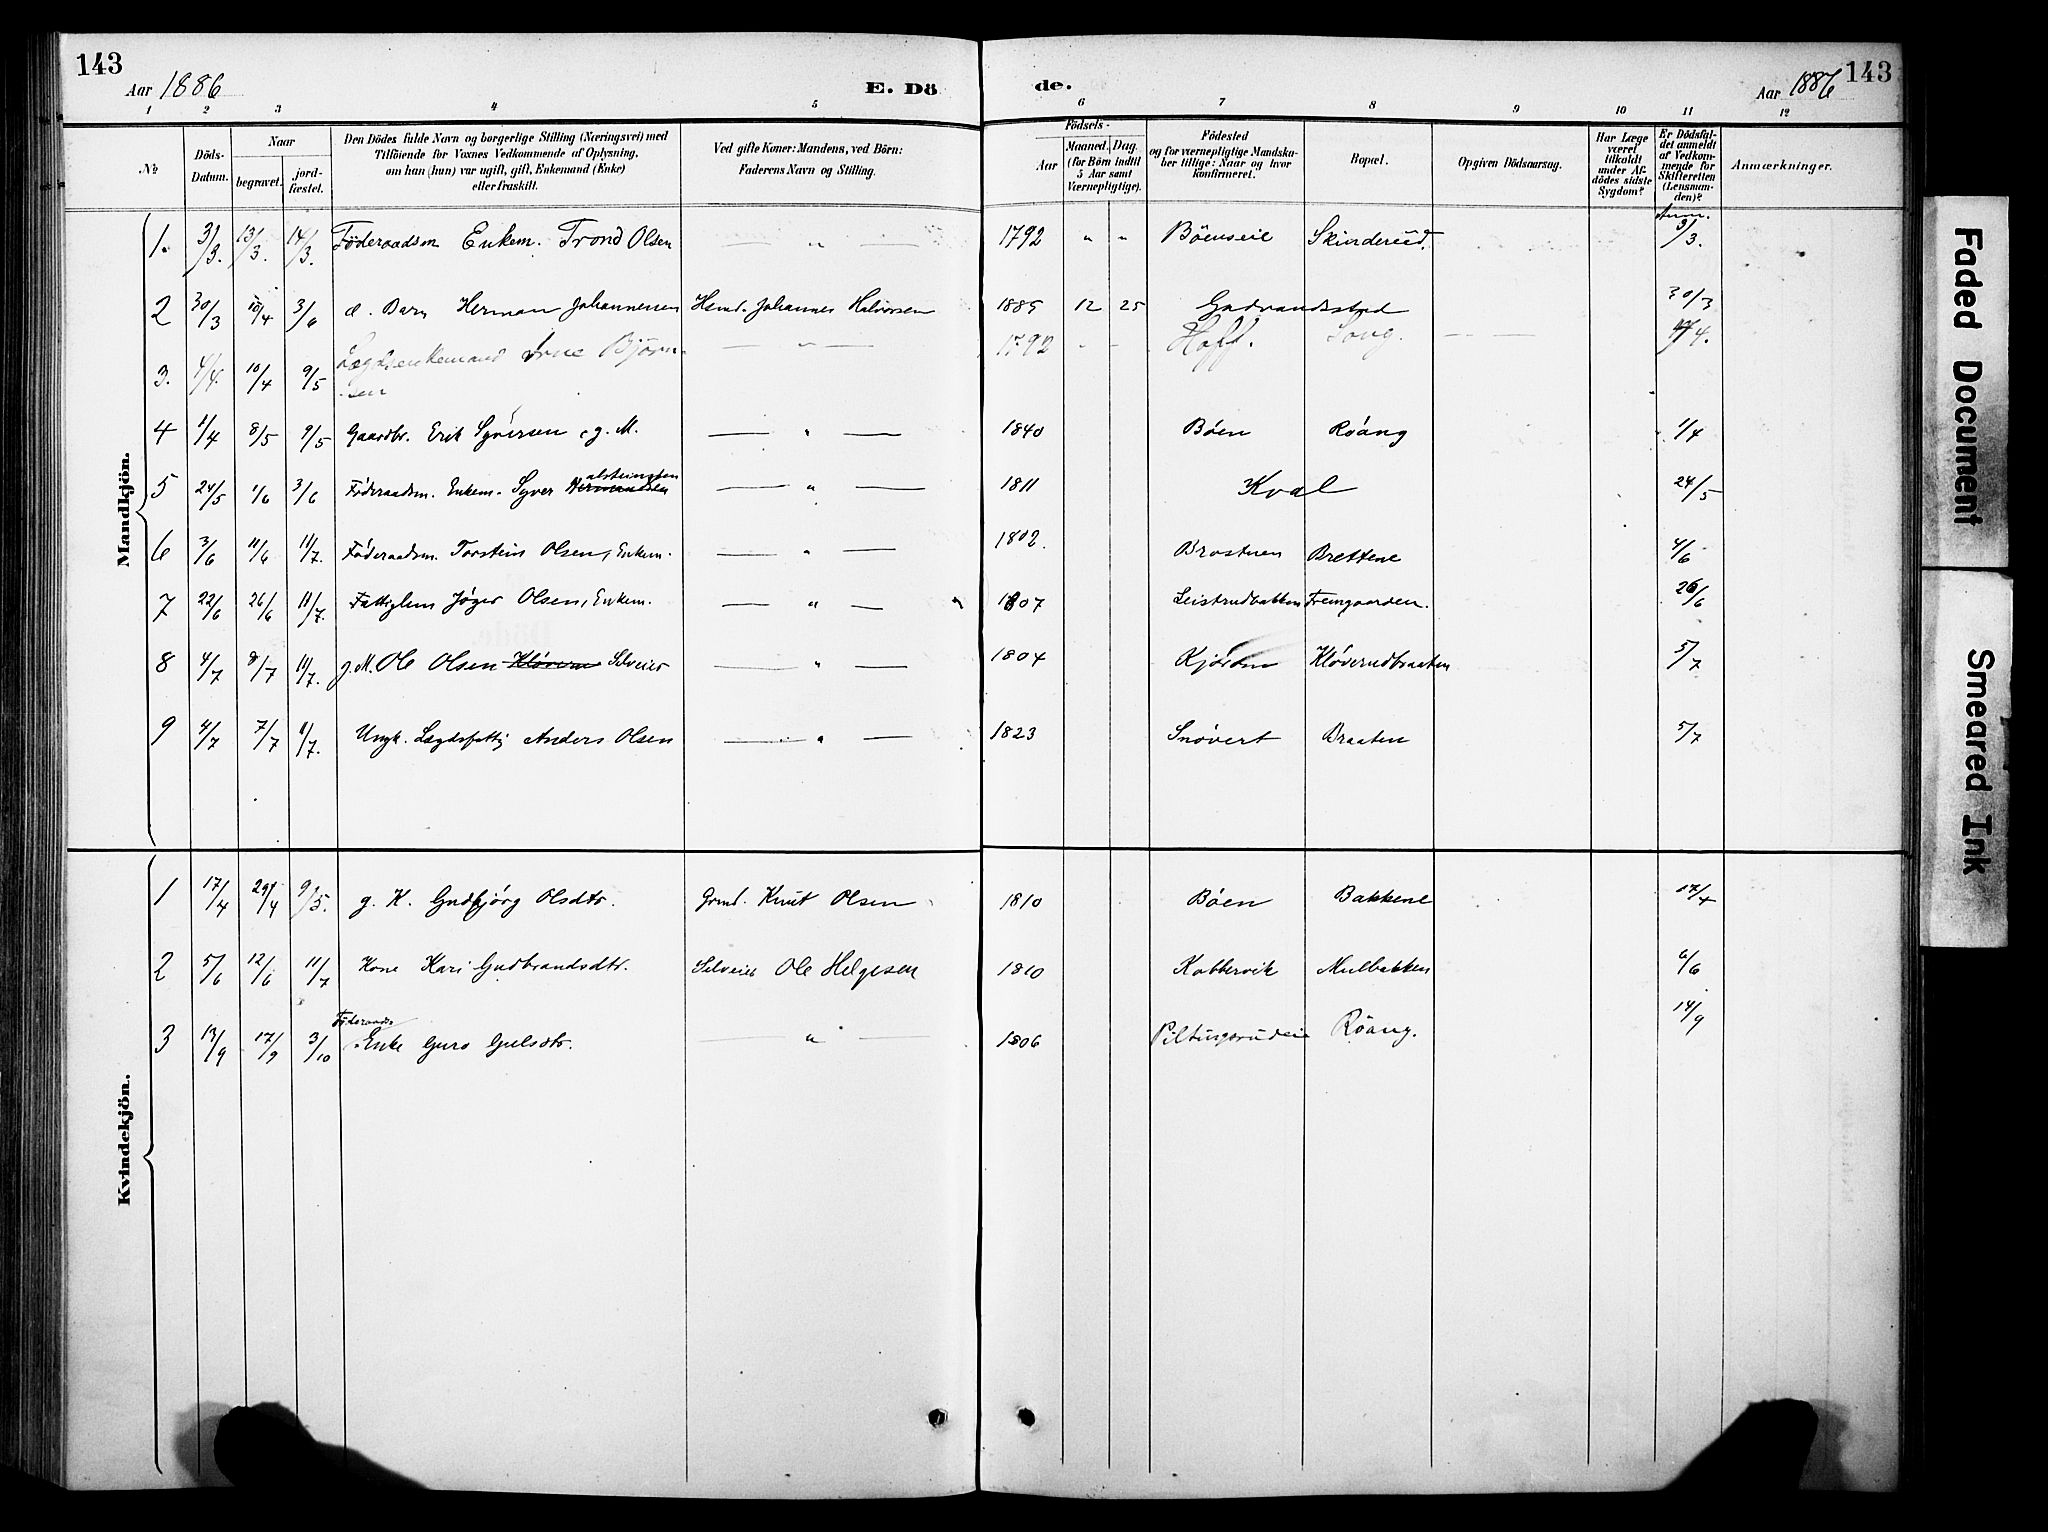 143
Aar 1886
E. Dö
de.
Aar 1886
143
1 2 3 4 5 6 7 8 9 10 11 12
No.
Döds-Datum.
Naar
begravet.
jord-fæstet.
Den Dödes fulde Navn og borgerlige Stilling (Næringsvei) med
Tilföiende for Voxnes Vedkommende af Oplysning,
om han (hun) var ugift, gift, Enkemand (Enke)
eller fraskilt.
Ved gifte Koner: Mandens, ved Börn:
Faderens Navn og Stilling.
Födsels-
Aar
Maaned. Dag.
(for Börn indtil
5 Aar samt
Værnepligtige).
Födested
og for værnepligtige Mandska-
ber tillige: Naar og hvor
konfirmeret.
Bopæl.
Opgiven Dödsaarsag.
Har Læge
været
tilkaldt
under Af-
dödes sidste
Sygdom?
Er Dödsfal-
det anmeldt
af Vedkom-
mende for
Skifteretten
(Lensman-
den)?
Anmærkninger.
Mandkjön.
1. 3/3. 13/3. 14/3. Föderaadsm Enkem. Trond Olsen — „ 1792 „ „ Böenseie Skinderud. Anm. 3/3.
2 30/3 10/4 3/6 d. Barn Herman Johannessen Hsmd. Johannes Halvorsen 1885 12 25 Gudvandsstad 30/3
3. 4/4. 10/4 9/5 Lægdsenkemand Arne Björn-
sen — „ — 1792 - - Hoff. — — /4.
4 1/4 8/5 9/5 Gaardbr. Erik Syversen, g. M. — „ — 1840 Böen Röang 1/4
5 24/5 1/6 3/6 Föderaadsm. Enkem. Syver alsteinssen — „ — 1811 Kval 24/5
6 3/6 11/6 11/7. Föderaadsm. Torstein Olsen, Enkem. — „ — 1802. Brostuen Brettene 4/6
7 22/6 26/6 11/7. Fattiglem Jöger Olsen, Enkem. — „ — 1807 Leistrudbakken Fremgaarden. 26/6
8 4/7 8/7 11/7. g. M. Ole Olsen Selveier — „ — 1804 Kjörom Klöverudbraaten 5/7
9 4/7 7/7 11/7. Ungk. Lægdsfattig Anders Olsen — „ — 1823 Snövert Braaten 5/7
Kvindekjön.
1 17/4 29/4 9/5. g. K. Gudbjörg Olsdtr. Grmd. Knut Olsen 1810 Böen Bakkene 17/4
2 5/6 12/6 11/7 Kone Kari Gudbrandsdtr. Selveier Ole Helgesen 1810 Kobbervik Mulbakken 6/6
3 13/9 17/9 3/10 Föderaads
Enke Guro Gulsdtr. — „ — 1806 Piltingsrudeie Röang. 14/9
Faded Document
Smeared Ink